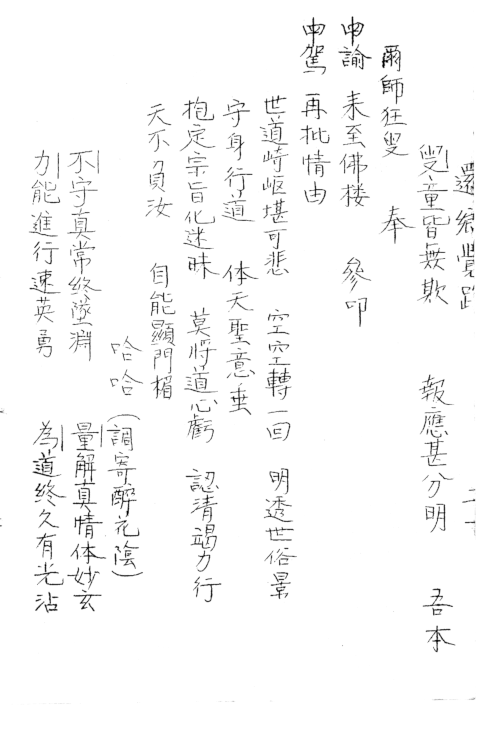 還鄉覺路
叟童皆無欺　報應甚分明　吾本
爾師狂叟　奉
申諭　来至佛楼　參叩
申駕　再批情由
世道崎岖堪可悲　空空轉一回　明透世俗景
守身行道　体天聖意垂
抱定宗旨化迷昧　莫將道心虧　認清竭力行
天不負汝　自能顯門楣
哈哈　（調寄醉花陰）
不守真常終墜淵　量解真情体妙玄
力能進行速英勇　為道終久有光沾